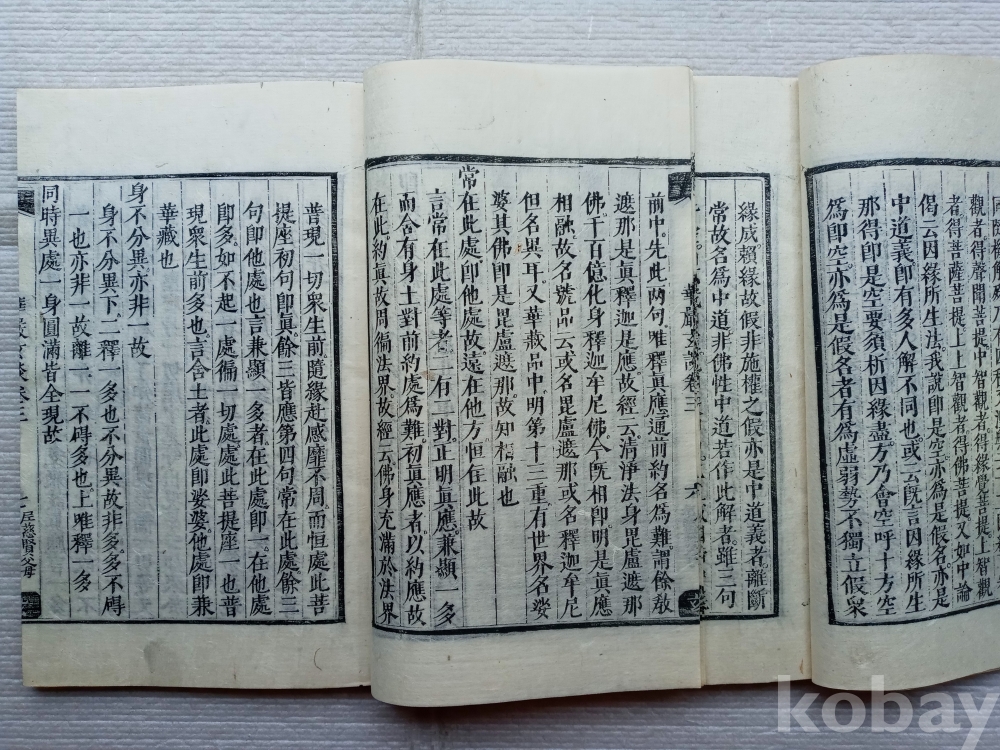 觀者得聲聞菩提上智觀者得緣覺菩提上上智觀
者得菩薩菩提上上智觀者得佛菩提又如中論
偈云因緣所生法我說即是空亦爲是假名亦是
中道義即有多人解不同也或云既言因緣所生
那得即是空要須析因緣盡方乃會空呼十方空
爲即空亦爲是假名者有爲虛弱勢不獨立假衆
緣成賴緣故假非施權之假亦是中道義者離斷
常故名爲中道非佛性中道若作此解者雖三句
華嚴玄談卷三
六
前中先此兩句唯釋眞應通前約名爲難謂餘教
遮那是眞釋迦是應故經云清淨法身毘盧遮那
佛千百億化身釋迦牟尼佛今既相即明是眞應
相融故名號品云或名毘盧遮那或名釋迦牟尼
但名異耳又華藏品中明第十三重有世界名娑
婆其佛即是毘盧遮那故知相融也
常在此處即他處故遠在他方恒在此故
言常在此處等者二有二對正明眞應兼顯一多
而含有身土對前約處爲難初眞應者以約應故
在此約眞故周徧法界故經云佛身充滿於法界
普現一切衆生前隨緣赴感靡不周而恒處此菩
提座初句即眞餘三皆應第四句常在此處餘三
句即他處也言兼顯一多者在此處即一在他處
即多如不起一處徧一切處此菩提座一也普
現衆生前多也言含土者此處即娑婆他處即兼
華藏也
身不分異亦非一故
身不分異下二釋一多也不分異故非多多不碍
一也亦非一故離一一不碍多也上唯釋一多
同時異處一身圓滿皆全現故
kobay